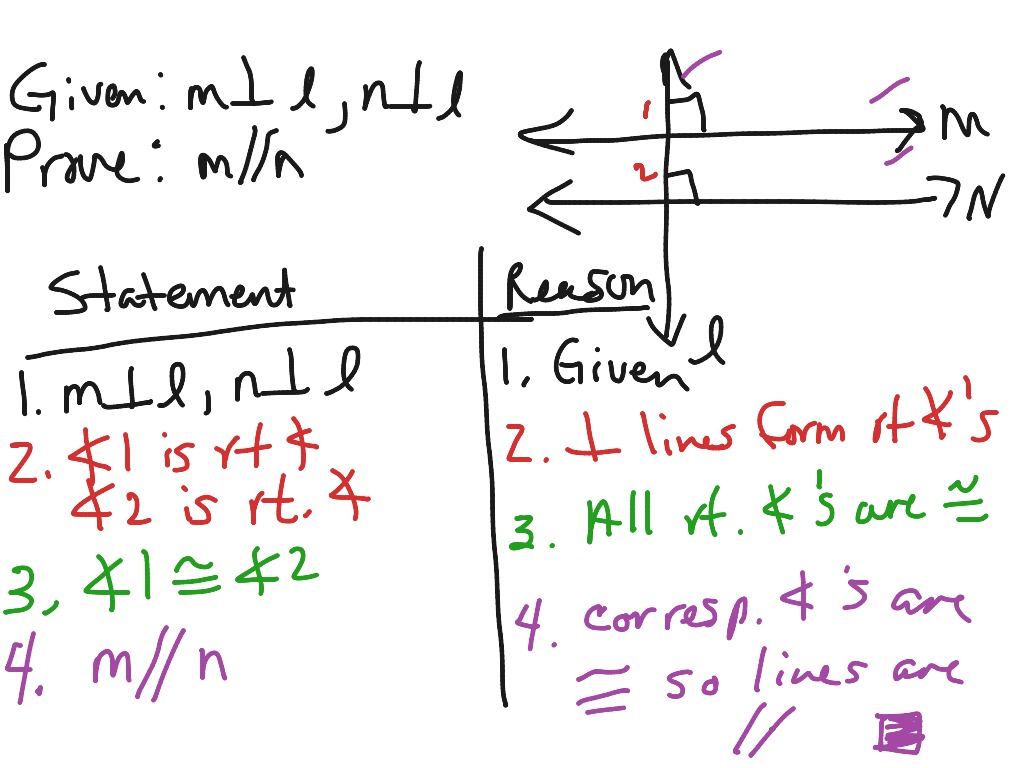 Given: m⊥l, n⊥l
Prove: m//n
1
m
2
N
l
Statement
Reason
1. m⊥l, n⊥l
1. Given
2. ∡1 is rt ∡
∡2 is rt. ∡
2. ⊥ lines form rt ∡'s
3, ∡1 ≅ ∡2
3. All rt. ∡'s are ≅
4. m//n
4. corresp. ∡'s are
≅ so lines are
//